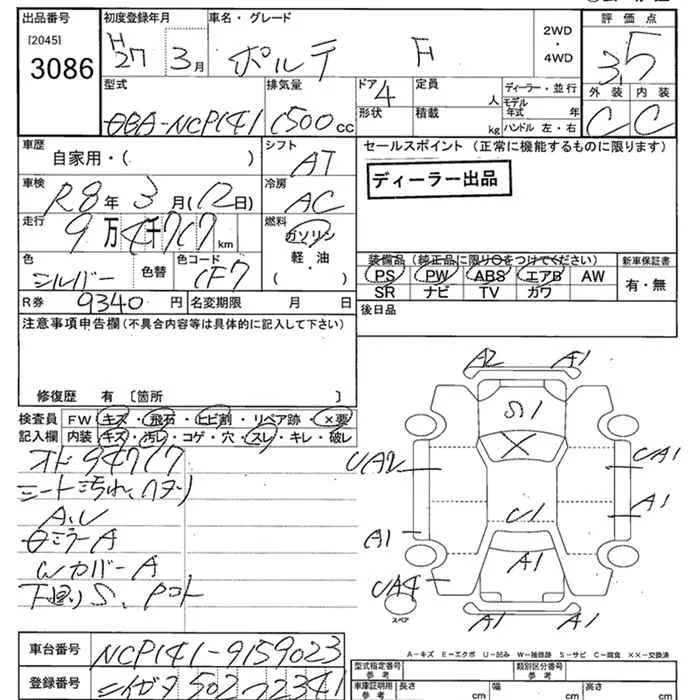 出品番号 初度登録年月 車名・グレード 2WD・4WD 評価点
[2045] H27 3月 ポルテ F 3.5
3086 外装 内装
型式 排気量 ドア 4 定員 人 ディーラー・並行
DBA-NCP141 1500cc 形状 積載 kg モデル年式 年
ハンドル 左・右 C C
車歴 自家用・( ) シフト AT セールスポイント (正常に機能するものに限ります)
車検 R8年 3月(12日) 冷房 AC ディーラー出品
走行 9万4千717km 燃料 ガソリン・軽油・( )
色 シルバー 色替 色コード 1F7 装備品(純正品に限り○をつけてください) 新車保証書
PS PW ABS エアB AW 有・無
SR ナビ TV カワ
R券 9340円 名変期限 月 日 後日品
注意事項申告欄(不具合内容等は具体的に記入して下さい)
修復歴 有 〔箇所 〕
検査員 FW キズ・飛石・ヒビ割・リペア跡・×要
記入欄 内装 キズ・汚レ・コゲ・穴・スレ・キレ・破レ
オド94717
シート汚れ、
A、U
ミラーA
WカバーA
下廻りS、
A2 A1
S1
X
UA2 UA1
U1 A1
A1 A1
UA4
スペア
A1 A1
A-キズ E-エクボ U-凹み W-補修跡 S-サビ C-腐食 XX-交換済
車台番号 NCP141-9159023
登録番号 502 2341
型式指定番号 参考 類別区分番号 参考
車庫証明用 参考 長さ cm 幅 cm 高さ cm